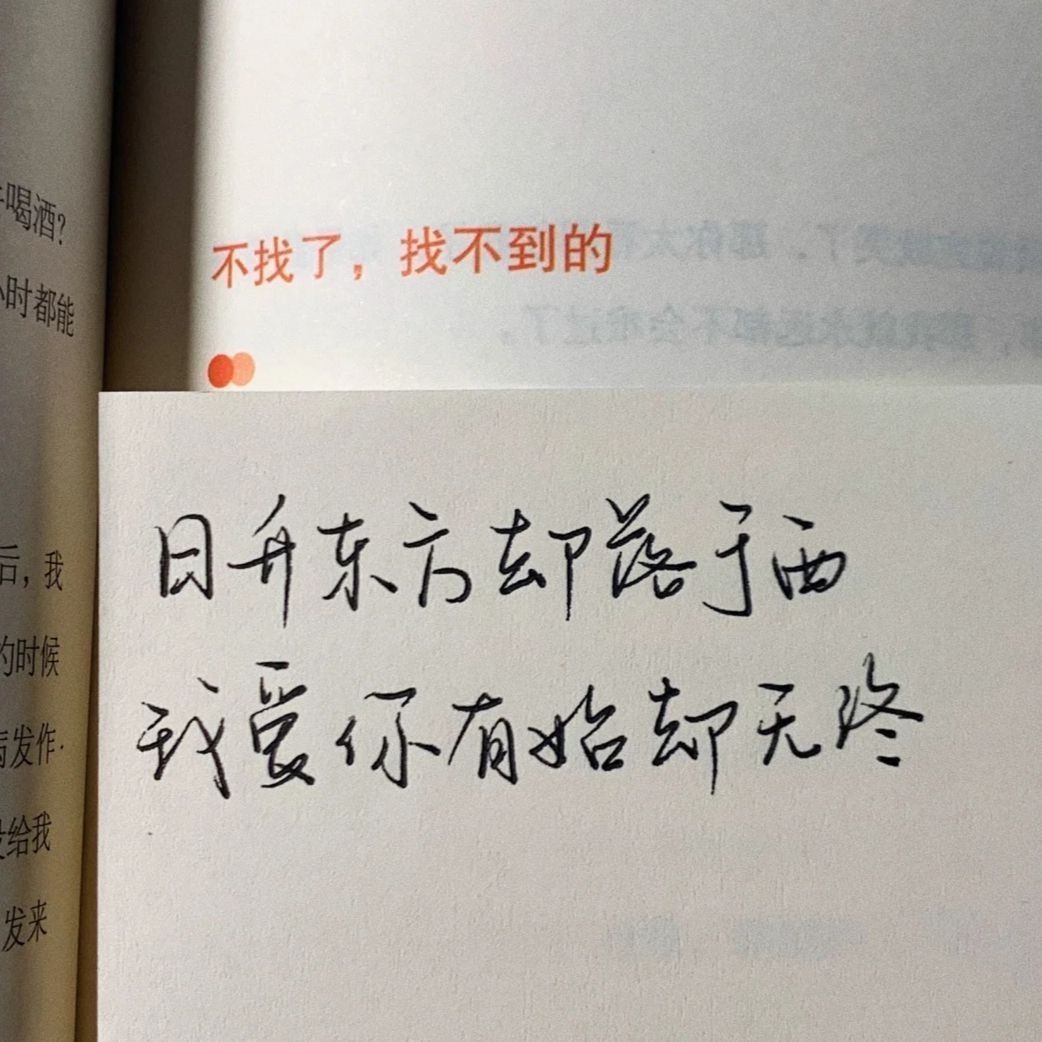 喝酒？
小时都能
后，我
的时候
病发作
给我
发来
不找了，找不到的
日升东方却落于西
我爱你有始却无终